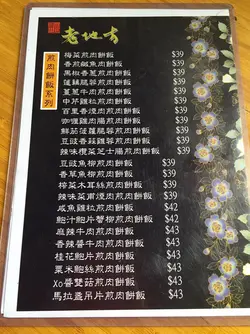 老地方
煎肉餅飯系列
梅菜煎肉餅飯 $39
香煎鹹魚煎肉餅飯 $39
黑椒香蔥煎肉餅飯 $39
蓮藕脆蓉煎肉餅飯 $39
薑蔥牛肉煎肉餅飯 $39
中芹雞粒煎肉餅飯 $39
百里香煙肉煎肉餅飯 $39
咖喱雞肉腸煎肉餅飯 $39
鮮茄菠蘿腸蓉煎肉餅飯 $39
豆豉香蒜雞蓉煎肉餅飯 $39
辣味欖菜芝士腸煎肉餅飯 $39
豆豉魚柳煎肉餅飯 $39
香草魚柳煎肉餅飯 $39
榨菜木耳絲煎肉餅飯 $39
辣味菜甫煙肉煎肉餅飯 $39
咸魚雞粒煎肉餅飯 $42
鮑汁鮑片蟹柳煎肉餅飯 $42
麻辣牛肉煎肉餅飯 $43
香辣醬牛肉煎肉餅飯 $43
桂花鮑片煎肉餅飯 $43
粟米鮑絲煎肉餅飯 $43
Xo醬雙菇煎肉餅飯 $43
馬拉盞吊片煎肉餅飯 $43